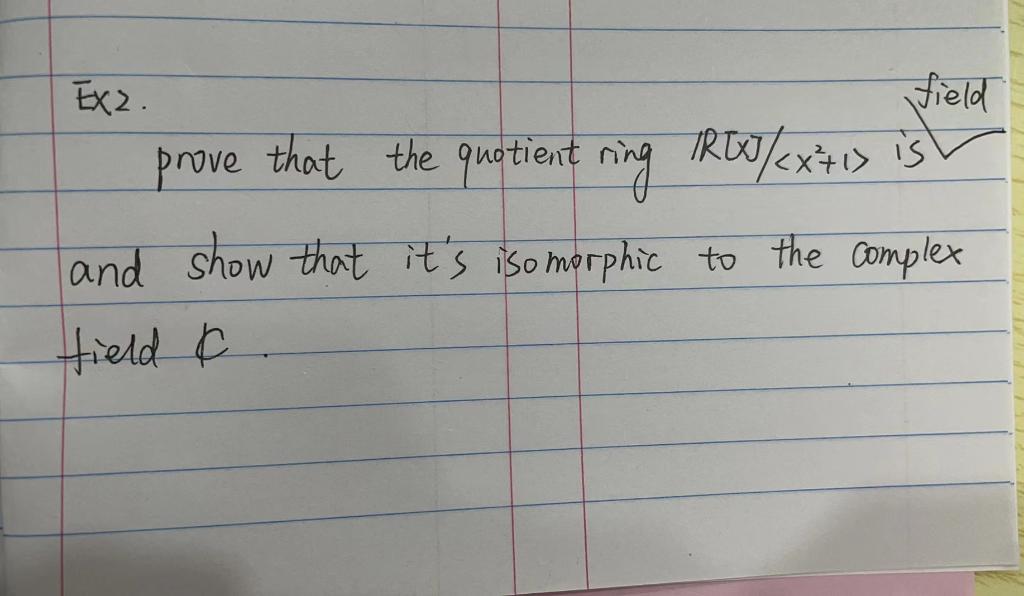 Ex2.
prove that the quotient ring ℝ[x]/<x²+1> is field
and show that it's isomorphic to the complex
field ℂ.